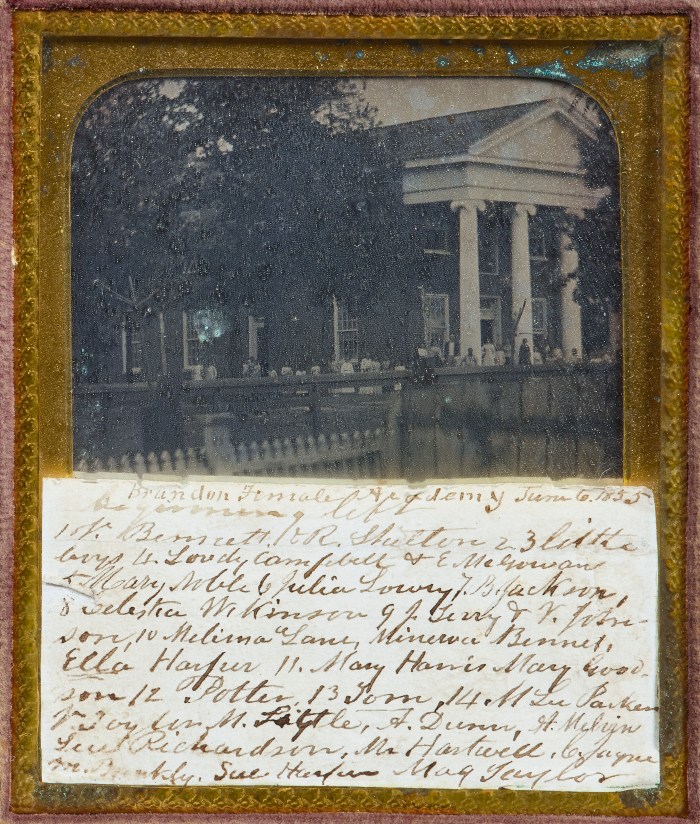 Brandon Female Academy June 6. 1855
Beginning left
1 V. Bennett, & R. Shelton 2 3 little
boys 4. Lovdy Campbell & E McGowan
5 Mary Noble 6 Julia Lowry 7. B. Jackson,
8 Celestia Wilkinson 9 J. Terry & V. John-
son, 10 Melima Lane, Minerva Bennet,
Ella Harper 11. Mary Harris Mary Good-
son 12 Potter, 13 Tom, 14. M Lee Parker
M. Little, A. Dunn, A. Melvin
Richardson, Mr Hartwell,
Sue Harper Mag Taylor